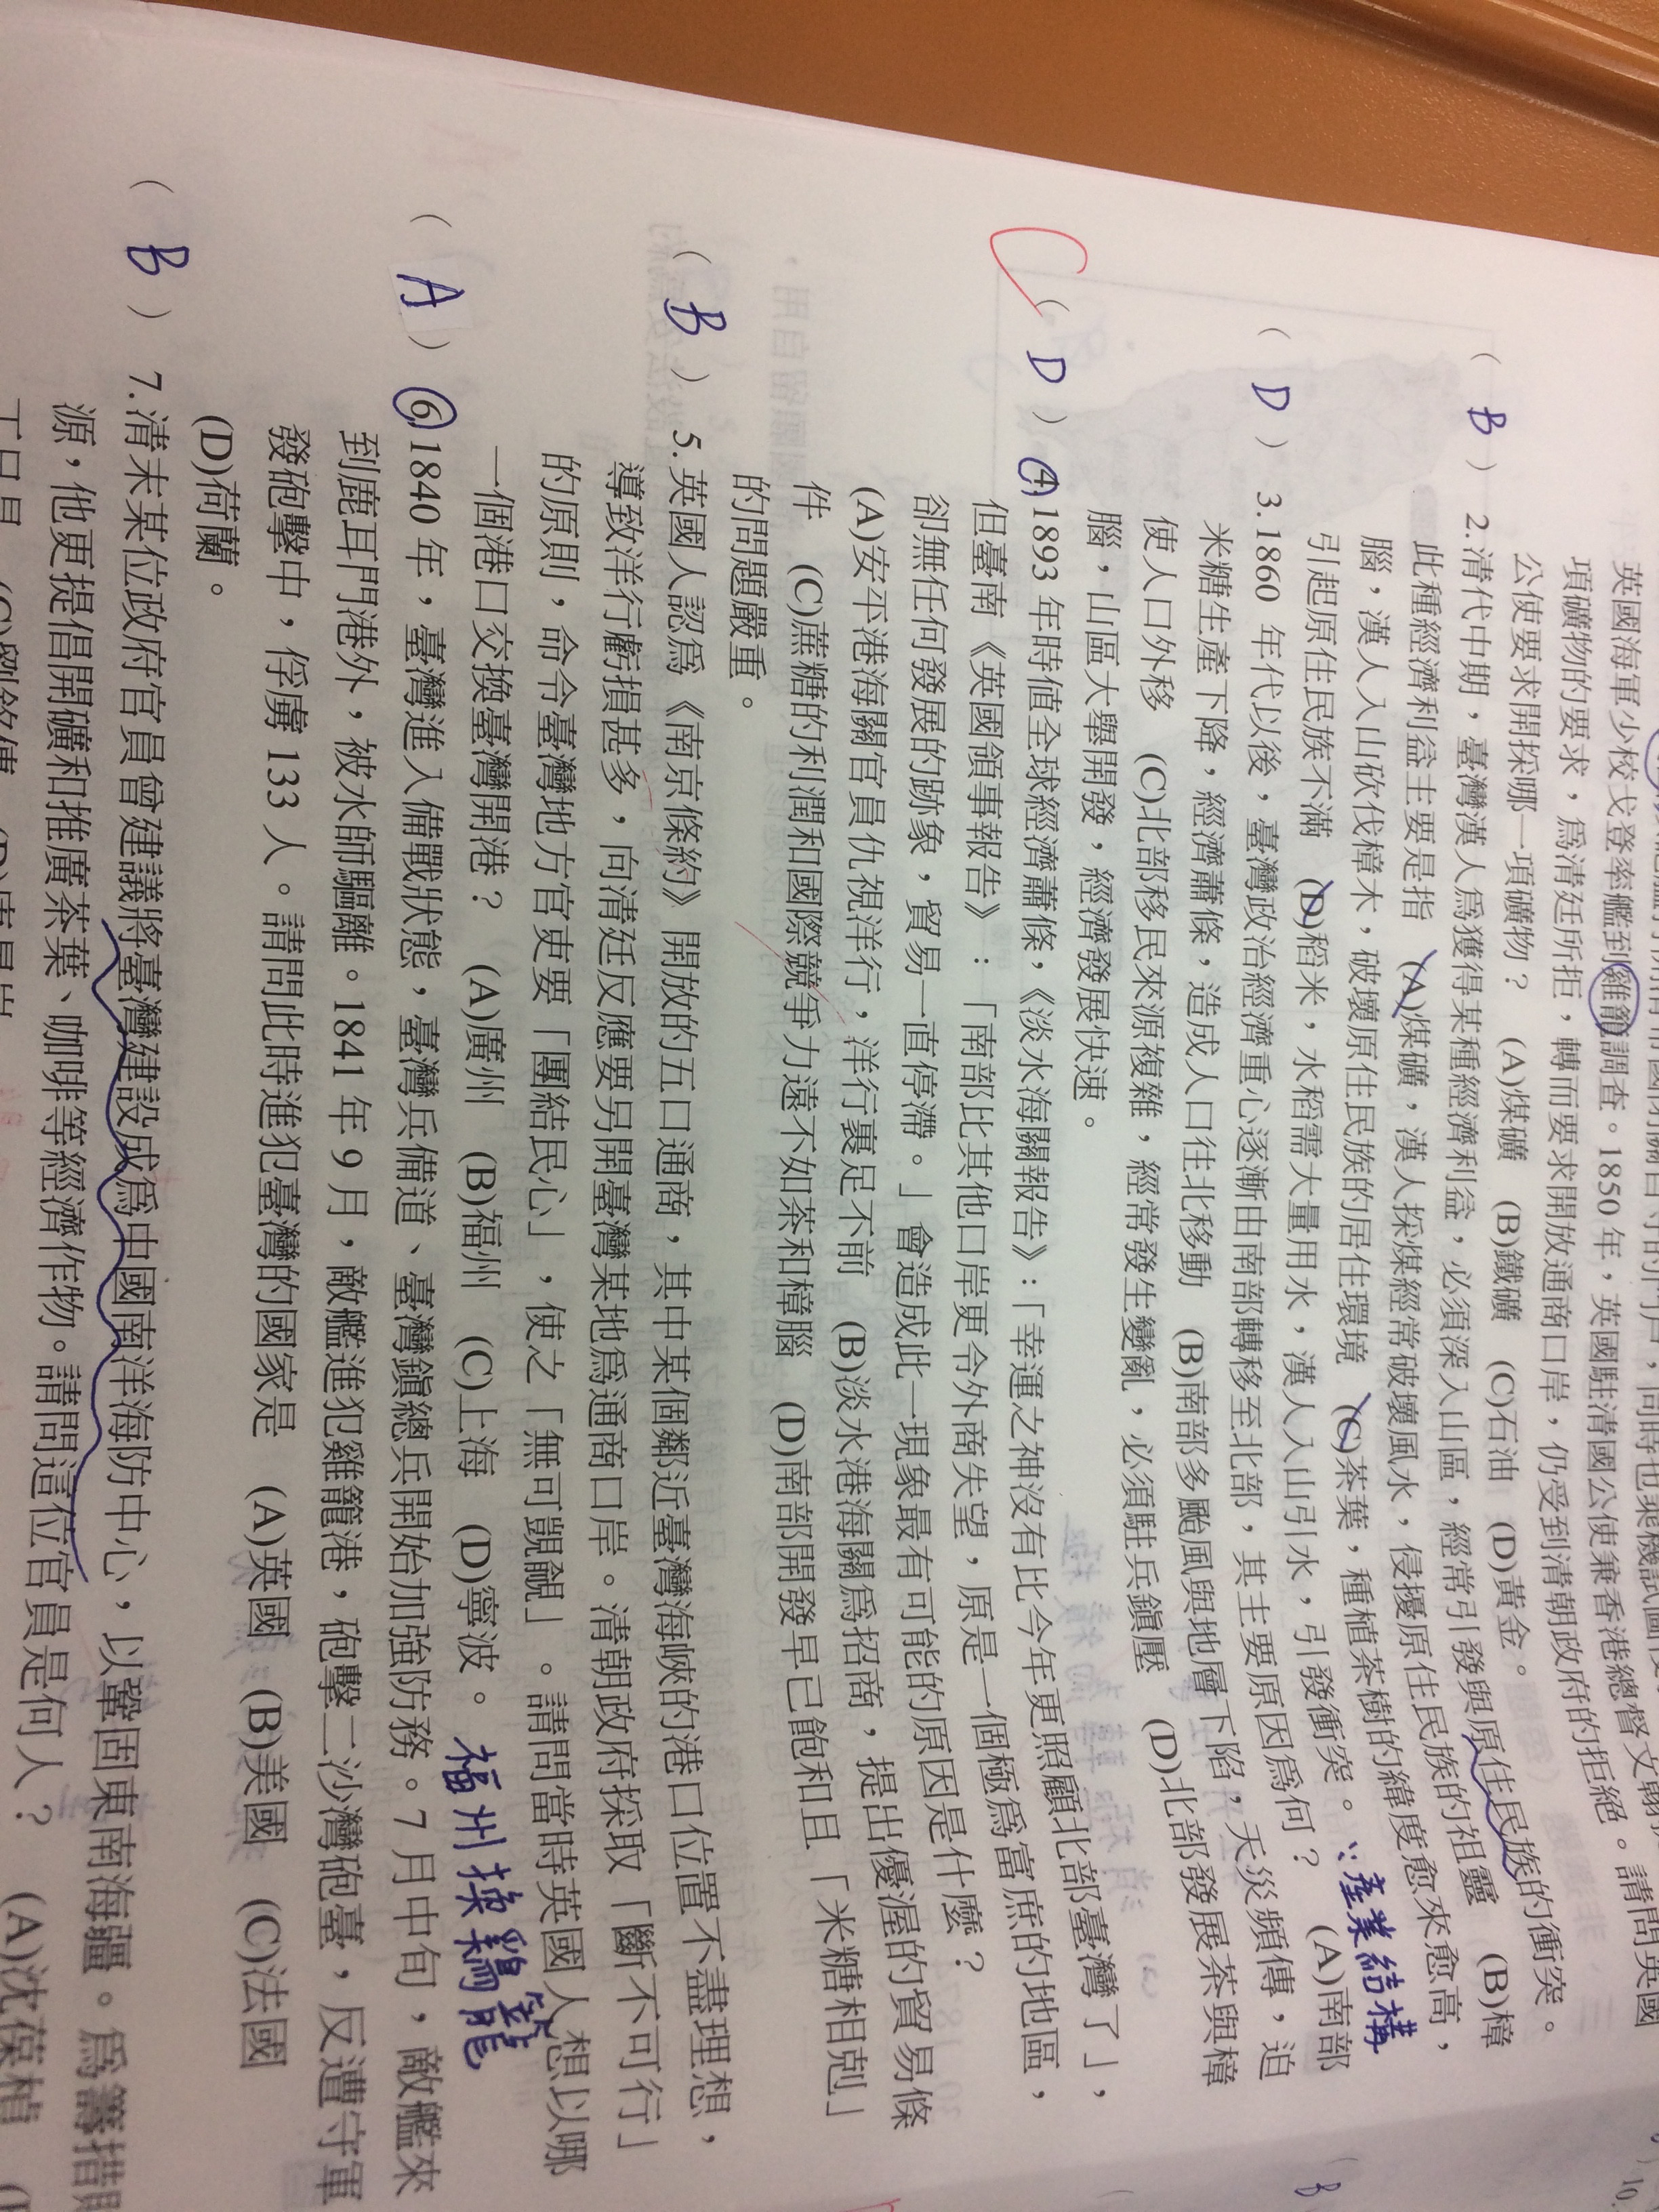 英國海軍少校戈登率艦到雞籠調查。1850 年，英國駐清國公使兼香港總督文翰
項礦物的要求，為清廷所拒，轉而要求開放通商口岸，仍受到清朝政府的拒絕。請問英國
公使要求開採哪一項礦物？ (A)煤礦 (B)鐵礦 (C)石油 (D)黃金。
( B ) 2.清代中期，臺灣漢人為獲得某種經濟利益，必須深入山區，經常引發與原住民族的衝突。
此種經濟利益主要是指 (A)煤礦，漢人採煤經常破壞風水，侵擾原住民族的祖靈 (B)樟
腦，漢人入山砍伐樟木，破壞原住民族的居住環境 (C)茶葉，種植茶樹的緯度愈來愈高，
引起原住民族不滿 (D)稻米，水稻需大量用水，漢人入山引水，引發衝突。 ∵產業結構
( D ) 3.1860 年代以後，臺灣政治經濟重心逐漸由南部轉移至北部，其主要原因為何？ (A)南部
米糖生產下降，經濟蕭條，造成人口往北移動 (B)南部多颱風與地層下陷，天災頻傳，迫
使人口外移 (C)北部移民來源複雜，經常發生變亂，必須駐兵鎮壓 (D)北部發展茶與樟
腦，山區大舉開發，經濟發展快速。
( D ) 4.1893 年時值全球經濟蕭條，《淡水海關報告》：「幸運之神沒有比今年更照顧北部臺灣了」，
但臺南《英國領事報告》：「南部比其他口岸更令外商失望，原是一個極為富庶的地區，
卻無任何發展的跡象，貿易一直停滯。」會造成此一現象最有可能的原因是什麼？
(A)安平港海關官員仇視洋行，洋行裹足不前 (B)淡水港海關為招商，提出優渥的貿易條
件 (C)蔗糖的利潤和國際競爭力遠不如茶和樟腦 (D)南部開發早已飽和且「米糖相剋」
的問題嚴重。
( B ) 5.英國人認為《南京條約》開放的五口通商，其中某個鄰近臺灣海峽的港口位置不盡理想，
導致洋行虧損甚多，向清廷反應要另開臺灣某地為通商口岸。清朝政府採取「斷不可行」
的原則，命令臺灣地方官吏要「團結民心」，使之「無可覬覦」。請問當時英國人想以哪
一個港口交換臺灣開港？ (A)廣州 (B)福州 (C)上海 (D)寧波。 福州換雞籠
( A ) 6.1840 年，臺灣進入備戰狀態，臺灣兵備道、臺灣鎮總兵開始加強防務。7 月中旬，敵艦來
到鹿耳門港外，被水師驅離。1841 年 9 月，敵艦進犯雞籠港，砲擊二沙灣砲臺，反遭守軍
發砲擊中，俘虜 133 人。請問此時進犯臺灣的國家是 (A)英國 (B)美國 (C)法國
(D)荷蘭。
( B ) 7.清末某位政府官員曾建議將臺灣建設成為中國南洋海防中心，以鞏固東南海疆。為籌措
源，他更提倡開礦和推廣茶葉、咖啡等經濟作物。請問這位官員是何人？ (A)沈葆楨